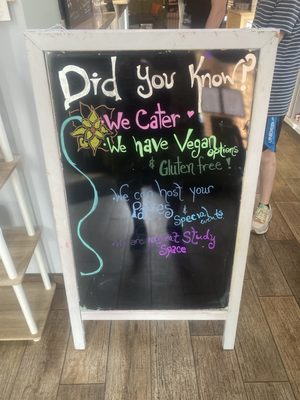 Did you know?
We Cater
We have Vegan options
& Gluten free!
We can host your
& Special events
We are a great Study
Space